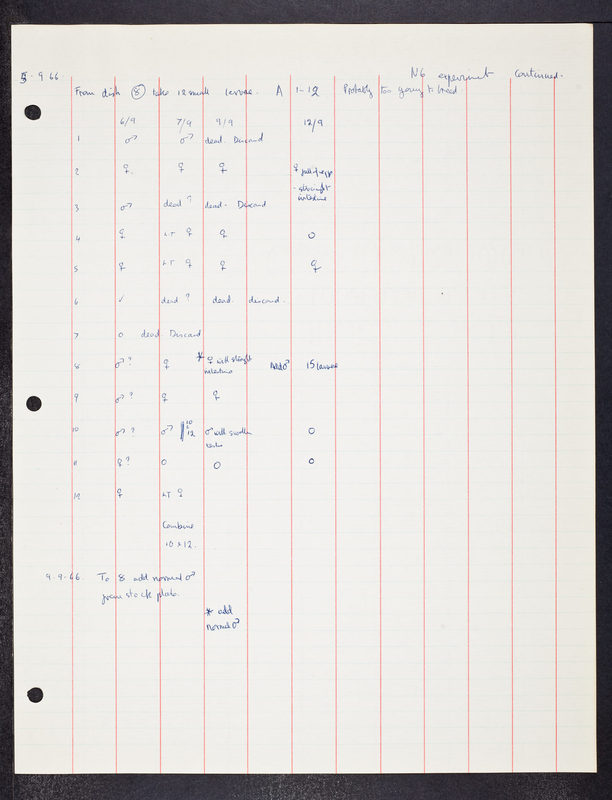 5-9 66
N6 experiment continued.
From dish 8 take 12 small larvae. A 1-12 Probably too young to breed
6/9 7/9 9/9 12/9
1 ♂ ♂ dead. Discard
2 ♀ ♀ ♀ ♀ full of eggs
- straight
intestine
3 ♂ dead? dead. Discard
4 ♀ LT ♀ ♀ O
5 ♀ LT ♀ ♀ ♀
6 ✓ dead? dead. discard.
7 O dead. Discard
8 ♂? ♀ * ♀ with straight Add ♂ 15 larvae
intestine
9 ♂? ♀ ♀
10 ♂? ♂ 10 & 12 ♂ with swollen O
11 ♀? O O O
12 ♀ LT ♀
Combine
10 & 12.
9-9-66. To 8 add normal ♂
from stock plate.
* add
normal ♂